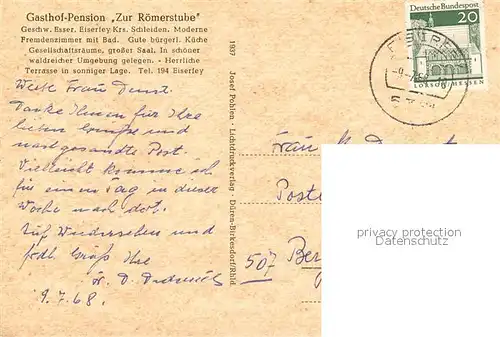 Gasthof-Pension „Zur Römerstube"
Geschw. Esser. Eiserley Krs. Schleiden. Moderne
Fremdenzimmer mit Bad. Gute bürgerl. Küche
Gesellschaftsräume, großer Saal. In schöner
waldreicher Umgebung gelegen. - Herrliche
Terrasse in sonniger Lage. Tel. 194 Eiserley
Danke Ihnen für Ihre
lieben Grüße und
nachgesandte Post.
Vielleicht komme ich
für einen Tag in dieser
Woche nach dort.
Auf Wiedersehen und
Gruß Ihre
9.7.68.
1937 Josef Pohlen · Lichtdruckverlag · Düren-Birkesdorf/Rhld.
Deutsche Bundespost
20
LORSCH/HESSEN
Frau
507
privacy protection
Datenschutz